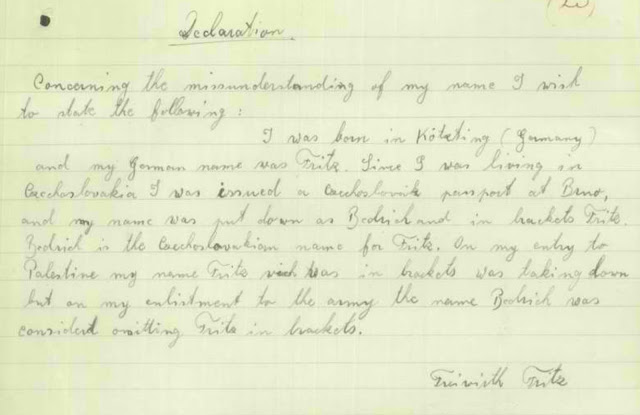 Declaration
Concerning the missunderstanding of my name I wish
to state the following :
I was born in Kötzting (Germany)
and my German name was Fritz. Since I was living in
Czechoslovakia I was issued a Czechoslovak passport at Brno,
and my name was put down as Bedrich and in brackets Fritz.
Bedrich is the Czechoslovakian name for Fritz. On my entry to
Palestine my name Fritz was in brackets was taking down
but on my enlistment to the army the name Bedrich was
considerd omitting Fritz in brackets.
Fritz